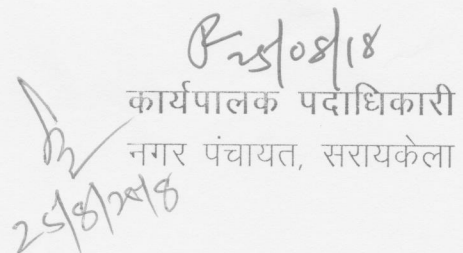 25/08/18
कार्यपालक पदाधिकारी
नगर पंचायत, सरायकेला
25/8/2018